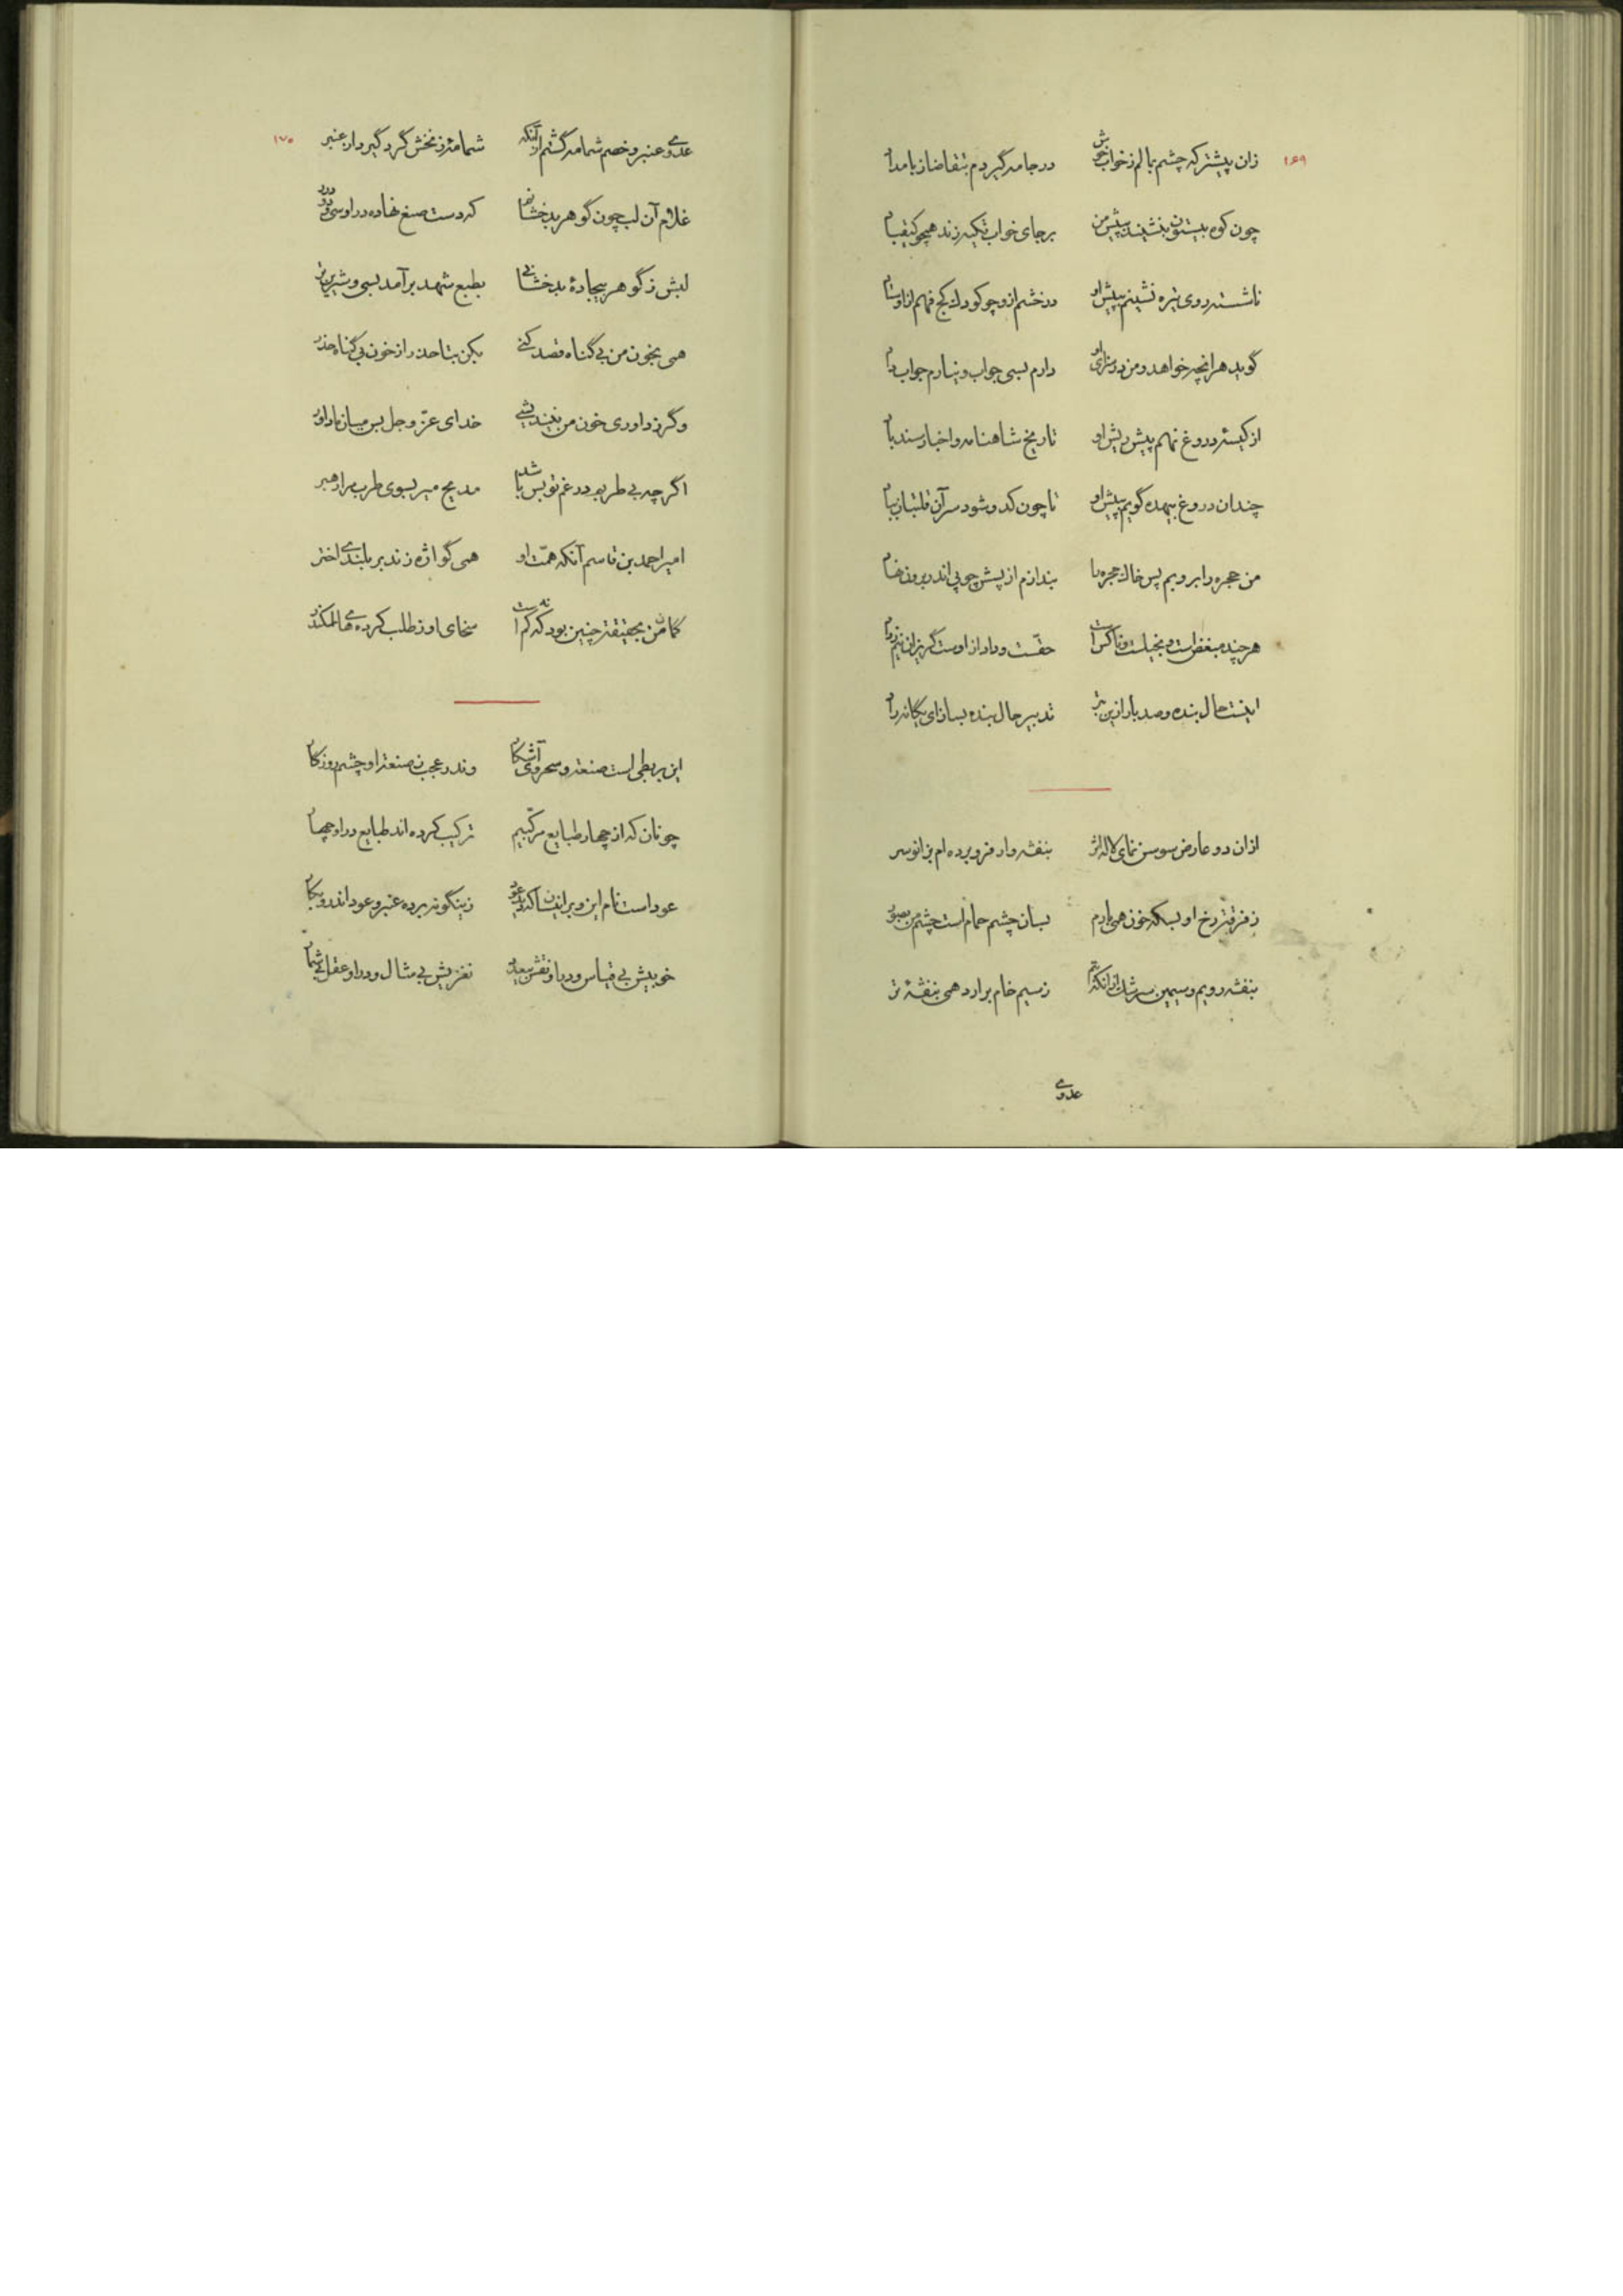 ۱۶۹
زان پیشتر که چشم بمالم ز خواب خوش در جامه گیردم بتقاضا ز بامداد
چون کوه بیستون بنشیند به پیش من بر جای خواب تکیه زند همچو کیقباد
ناشسته روی تیره نشینم به پیش او در خشم ازو چو کودک کج فهم از اوستاد
گوید هر انچه خواهد و من در سزای او دارم بسی جواب و نیارم جواب داد
از کیسه دروغ نهم پیش ریش او تاریخ شاهنامه و اخبار سندباد
چندان دروغ بیهده گویم به پیش او تا چون کدو شود سر آن قلتبان
من حجره را بروبم پس خاک حجره را بندازم از پیش چو پی اندر برون نهاد
هر چند مبغض است و بخیلست و ناکس است حقست و داد از اوست گریزان نیم ز داد
اینست حال بنده و صد بار ازین بتر تدبیر حال بنده بساز ای یگانه راد
ازان دو عارض سوسن نمای لاله اثر بنفشه وار فرو برده ام بزانو سر
ز فرقت رخ او بسکه خون همی بارم بسان چشم حمام است چشم من
بنفشه رویم و سیمین سرشک ازانکه ز سیم خام برارد همی بنفشهٔ تر
عدوی
۱۷۰
عدوی عنبر و خصم شمامه گشتم ازآنکه شمامهٔ زنخش گرد گیر دارد عنبر
غلام آن لب چون گوهر بدخشانم که دست صنع نهاده در او سی و دو درر
لبش ز گوهر بیجادهٔ بدخشانی بطبع شهد برآمد بسی و شیرین تر
همی بخون من بی گناه قصد کنی بکن بتا حذر از خون بی گناه حذر
وگر ز داوری خون من نیندیشی خدای عزّ و جل بس میان ما داور
اگر چه بی طربم در غم تو بس باشد مدیح میر بسوی طرب مرا رهبر
امیر احمد بن قاسم آنکه همّت او همی گواژه زند بر بلندی اختر
گمان من بحقیقت چنین بود که کم است سخای او ز طلب کرده های اسکندر
این بربطی است صنعت و سحر وی آشکار وندر عجب ز صنعت او چشم روزگار
چونان که از چهار طبایع مرکّبیم ترکیب کرده اند طبایع در او چهار
عود است نام این و بر این زینگونه برده عنبر و عود اندرو بکار
خوبیش بی قیاس و در او نقش نغزیش بی مثال و در او عقل بی شمار